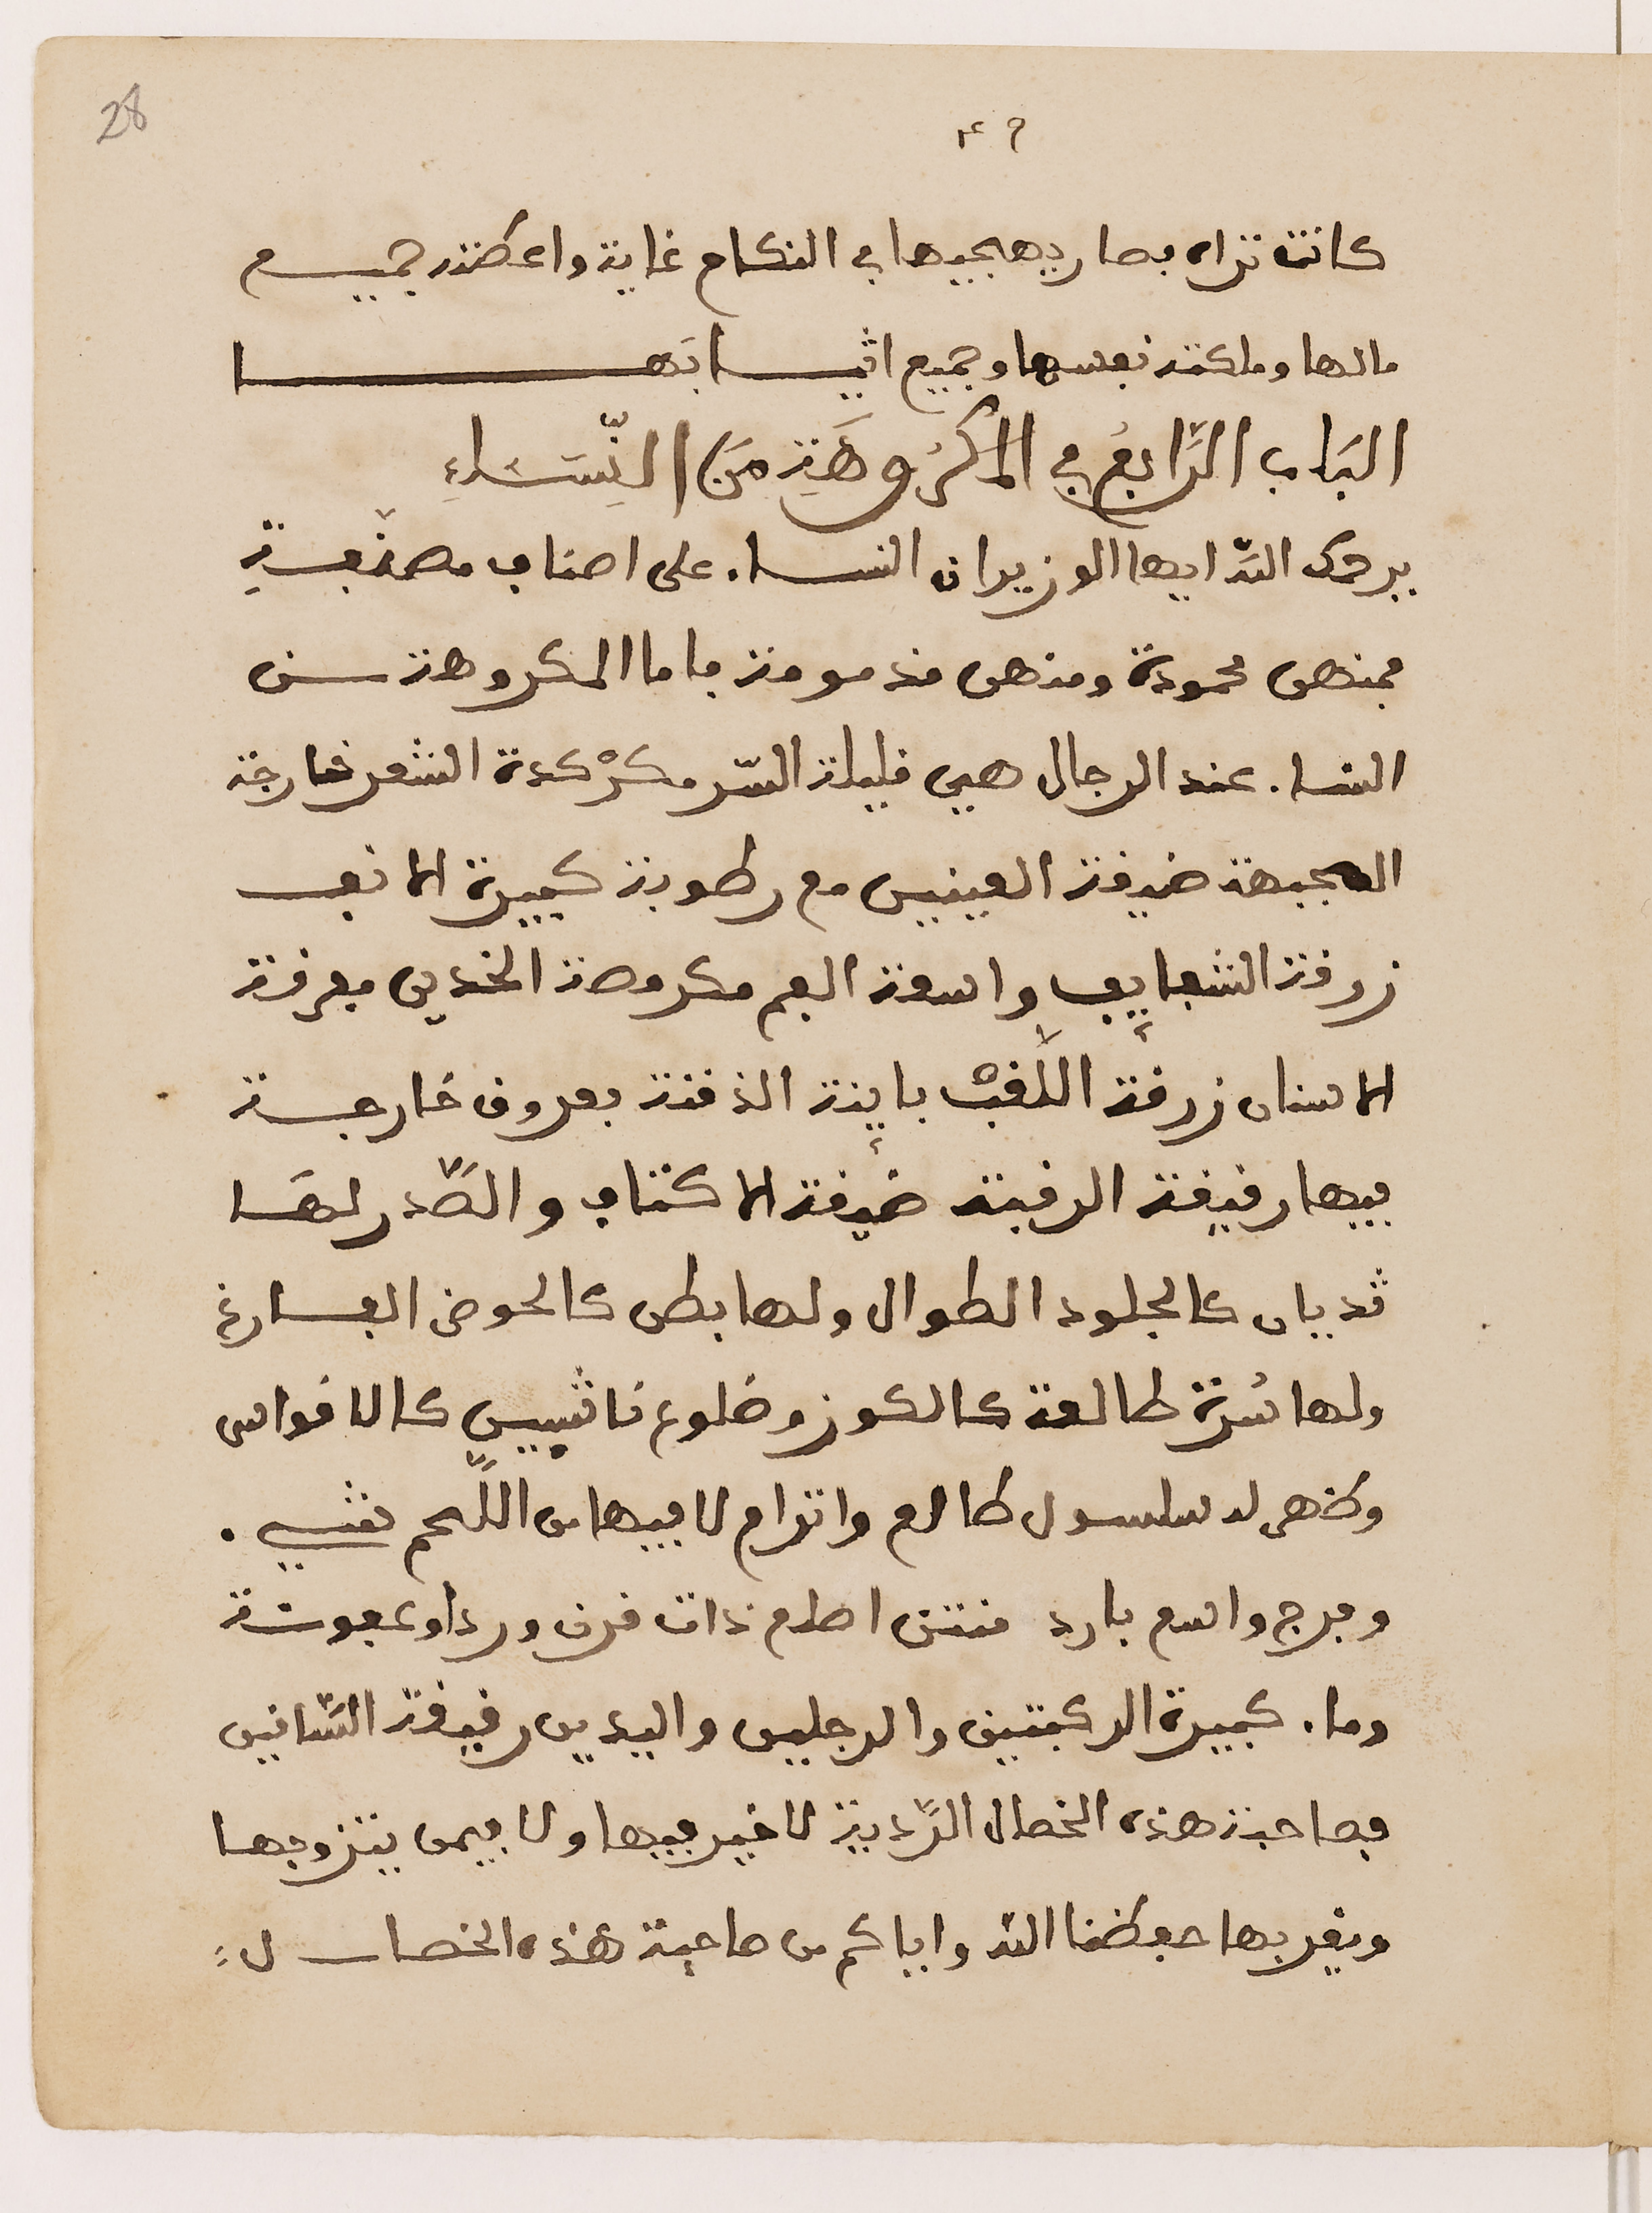 28
كانت تراه فصار يهيجها في النكاح غاية واعطته جميع
مالها وملكته نفسها وجميع اثيابها
البَاب الرَّابعُ في المكرُوهَةِ مِنَ النِّسَاءِ
يرحمك الله ايها الوزير ان النساء على اصناف مصنفة
فمنهن محمودة ومنهن مذمومة فاما المكروهة من
النساء عند الرجال هي قليلة السّر مكرْكدة الشعر خارجة
الجبهة ضيقة العينين مع رطوبة كبيرة الانف
زرقة الشفايف واسعة الفم مكروصة الخدين مفرقة
الاسنان زرقة اللَّقبْ باينة الذقنة بعروق خارجة
فيها رقيقة الرقبة ضيقة الاكتاف والصّدر لها
ثديان كالجلود الطوال ولها بطن كالحوض الفارغ
ولها سُرة طالعة كالكوز وضلوع ناتيين كالاقواس
وظهر له سلسول طالع واترام لا فيها من اللّحم شيء
وفرج واسع بارد منتن اصلع ذات قرن ورداو عفونة
وماء كبيرة الركبتين والرجلين واليدين رقيقة السّاقين
فصاحبة هذه الخصال الرّدية لا خير فيها ولا فيمن يتزوجها
ويقربها حفظنا الله واياكم من صاحبة هذه الخصال